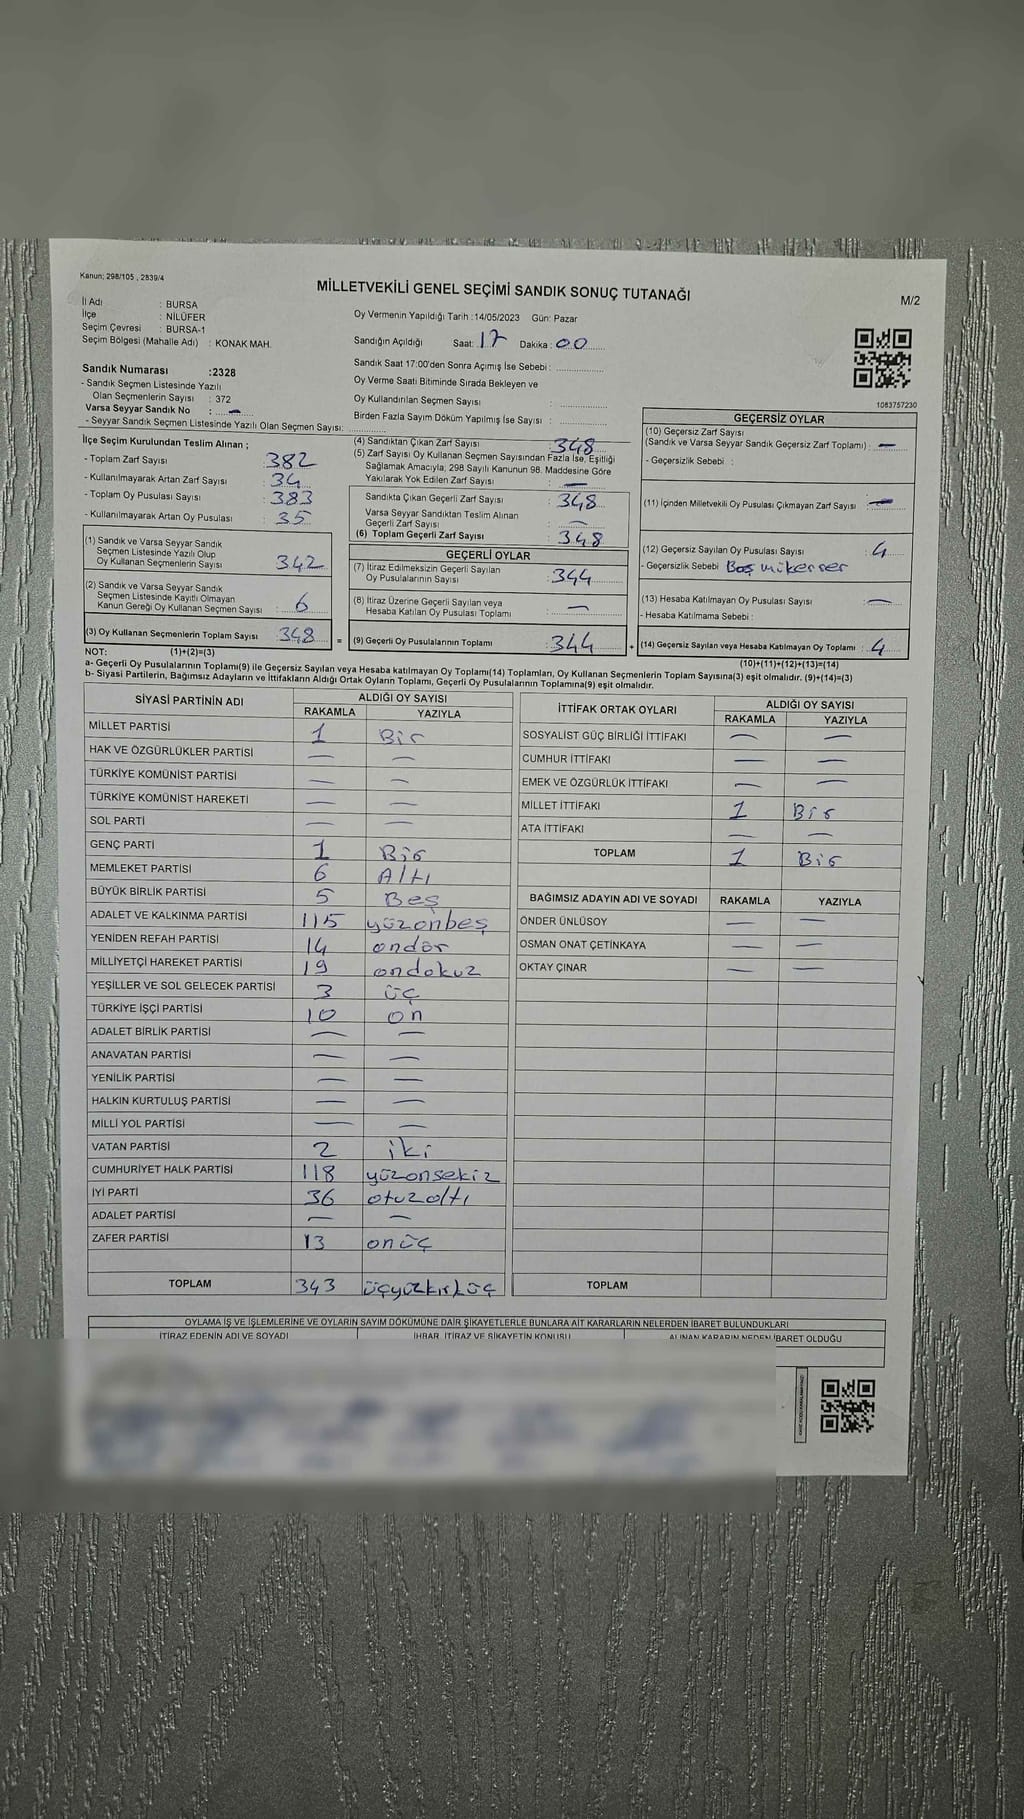 Kanun; 298/105 , 2839/4
MİLLETVEKİLİ GENEL SEÇİMİ SANDIK SONUÇ TUTANAĞI
M/2
İl Adı : BURSA
İlçe : NİLÜFER
Seçim Çevresi : BURSA-1
Seçim Bölgesi (Mahalle Adı) : KONAK MAH.
Sandık Numarası :2328
- Sandık Seçmen Listesinde Yazılı
Olan Seçmenlerin Sayısı : 372
Varsa Seyyar Sandık No : —
- Seyyar Sandık Seçmen Listesinde Yazılı Olan Seçmen Sayısı:
Oy Vermenin Yapıldığı Tarih :14/05/2023 Gün: Pazar
Sandığın Açıldığı Saat: 17 Dakika : 00
Sandık Saat 17:00'den Sonra Açımış İse Sebebi :
Oy Verme Saati Bitiminde Sırada Bekleyen ve
Oy Kullandırılan Seçmen Sayısı :
Birden Fazla Sayım Döküm Yapılmış İse Sayısı :
1083757230
İlçe Seçim Kurulundan Teslim Alınan ;
- Toplam Zarf Sayısı : 382
- Kullanılmayarak Artan Zarf Sayısı : 34
- Toplam Oy Pusulası Sayısı : 383
- Kullanılmayarak Artan Oy Pusulası : 35
(1) Sandık ve Varsa Seyyar Sandık
Seçmen Listesinde Yazılı Olup
Oy Kullanan Seçmenlerin Sayısı : 342
(2) Sandık ve Varsa Seyyar Sandık
Seçmen Listesinde Kayıtlı Olmayan
Kanun Gereği Oy Kullanan Seçmen Sayısı : 6
(3) Oy Kullanan Seçmenlerin Toplam Sayısı : 348 =
(4) Sandıktan Çıkan Zarf Sayısı : 348
(5) Zarf Sayısı Oy Kullanan Seçmen Sayısından Fazla İse, Eşitliği
Sağlamak Amacıyla; 298 Sayılı Kanunun 98. Maddesine Göre
Yakılarak Yok Edilen Zarf Sayısı : —
Sandıkta Çıkan Geçerli Zarf Sayısı : 348
Varsa Seyyar Sandıktan Teslim Alınan
Geçerli Zarf Sayısı : —
(6) Toplam Geçerli Zarf Sayısı : 348
GEÇERLİ OYLAR
(7) İtiraz Edilmeksizin Geçerli Sayılan
Oy Pusulalarının Sayısı : 344
(8) İtiraz Üzerine Geçerli Sayılan veya
Hesaba Katılan Oy Pusulası Toplamı : —
(9) Geçerli Oy Pusulalarının Toplamı : 344 +
GEÇERSİZ OYLAR
(10) Geçersiz Zarf Sayısı
(Sandık ve Varsa Seyyar Sandık Geçersiz Zarf Toplamı) : —
- Geçersizlik Sebebi :
(11) İçinden Milletvekili Oy Pusulası Çıkmayan Zarf Sayısı : —
(12) Geçersiz Sayılan Oy Pusulası Sayısı : 4
- Geçersizlik Sebebi : Boş mükerrer
(13) Hesaba Katılmayan Oy Pusulası Sayısı : —
- Hesaba Katılmama Sebebi :
(14) Geçersiz Sayılan veya Hesaba Katılmayan Oy Toplamı : 4
NOT: (1)+(2)=(3)
(10)+(11)+(12)+(13)=(14)
a- Geçerli Oy Pusulalarının Toplamı(9) ile Geçersiz Sayılan veya Hesaba katılmayan Oy Toplamı(14) Toplamları, Oy Kullanan Seçmenlerin Toplam Sayısına(3) eşit olmalıdır. (9)+(14)=(3)
b- Siyasi Partilerin, Bağımsız Adayların ve İttifakların Aldığı Ortak Oyların Toplamı, Geçerli Oy Pusulalarının Toplamına(9) eşit olmalıdır.
SİYASİ PARTİNİN ADI ALDIĞI OY SAYISI
RAKAMLA YAZIYLA
MİLLET PARTİSİ 1 Bir
HAK VE ÖZGÜRLÜKLER PARTİSİ — —
TÜRKİYE KOMÜNİST PARTİSİ — —
TÜRKİYE KOMÜNİST HAREKETİ — —
SOL PARTİ — —
GENÇ PARTİ 1 Bir
MEMLEKET PARTİSİ 6 Altı
BÜYÜK BİRLİK PARTİSİ 5 Beş
ADALET VE KALKINMA PARTİSİ 115 yüzonbeş
YENİDEN REFAH PARTİSİ 14 ondör
MİLLİYETÇİ HAREKET PARTİSİ 19 ondokuz
YEŞİLLER VE SOL GELECEK PARTİSİ 3 üç
TÜRKİYE İŞÇİ PARTİSİ 10 on
ADALET BİRLİK PARTİSİ — —
ANAVATAN PARTİSİ — —
YENİLİK PARTİSİ — —
HALKIN KURTULUŞ PARTİSİ — —
MİLLİ YOL PARTİSİ — —
VATAN PARTİSİ 2 iki
CUMHURİYET HALK PARTİSİ 118 yüzonsekiz
İYİ PARTİ 36 otuzaltı
ADALET PARTİSİ — —
ZAFER PARTİSİ 13 onüç
TOPLAM 343 üçyüzkırküç
İTTİFAK ORTAK OYLARI ALDIĞI OY SAYISI
RAKAMLA YAZIYLA
SOSYALİST GÜÇ BİRLİĞİ İTTİFAKI — —
CUMHUR İTTİFAKI — —
EMEK VE ÖZGÜRLÜK İTTİFAKI — —
MİLLET İTTİFAKI 1 Bir
ATA İTTİFAKI — —
TOPLAM 1 Bir
BAĞIMSIZ ADAYIN ADI VE SOYADI RAKAMLA YAZIYLA
ÖNDER ÜNLÜSOY — —
OSMAN ONAT ÇETİNKAYA — —
OKTAY ÇINAR — —
TOPLAM
OYLAMA İŞ VE İŞLEMLERİNE VE OYLARIN SAYIM DÖKÜMÜNE DAİR ŞİKAYETLERLE BUNLARA AİT KARARLARIN NELERDEN İBARET BULUNDUKLARI
İTİRAZ EDENİN ADI VE SOYADI İHBAR, İTİRAZ VE ŞİKAYETİN KONUSU ALINAN KARARIN NEDEN İBARET OLDUĞU